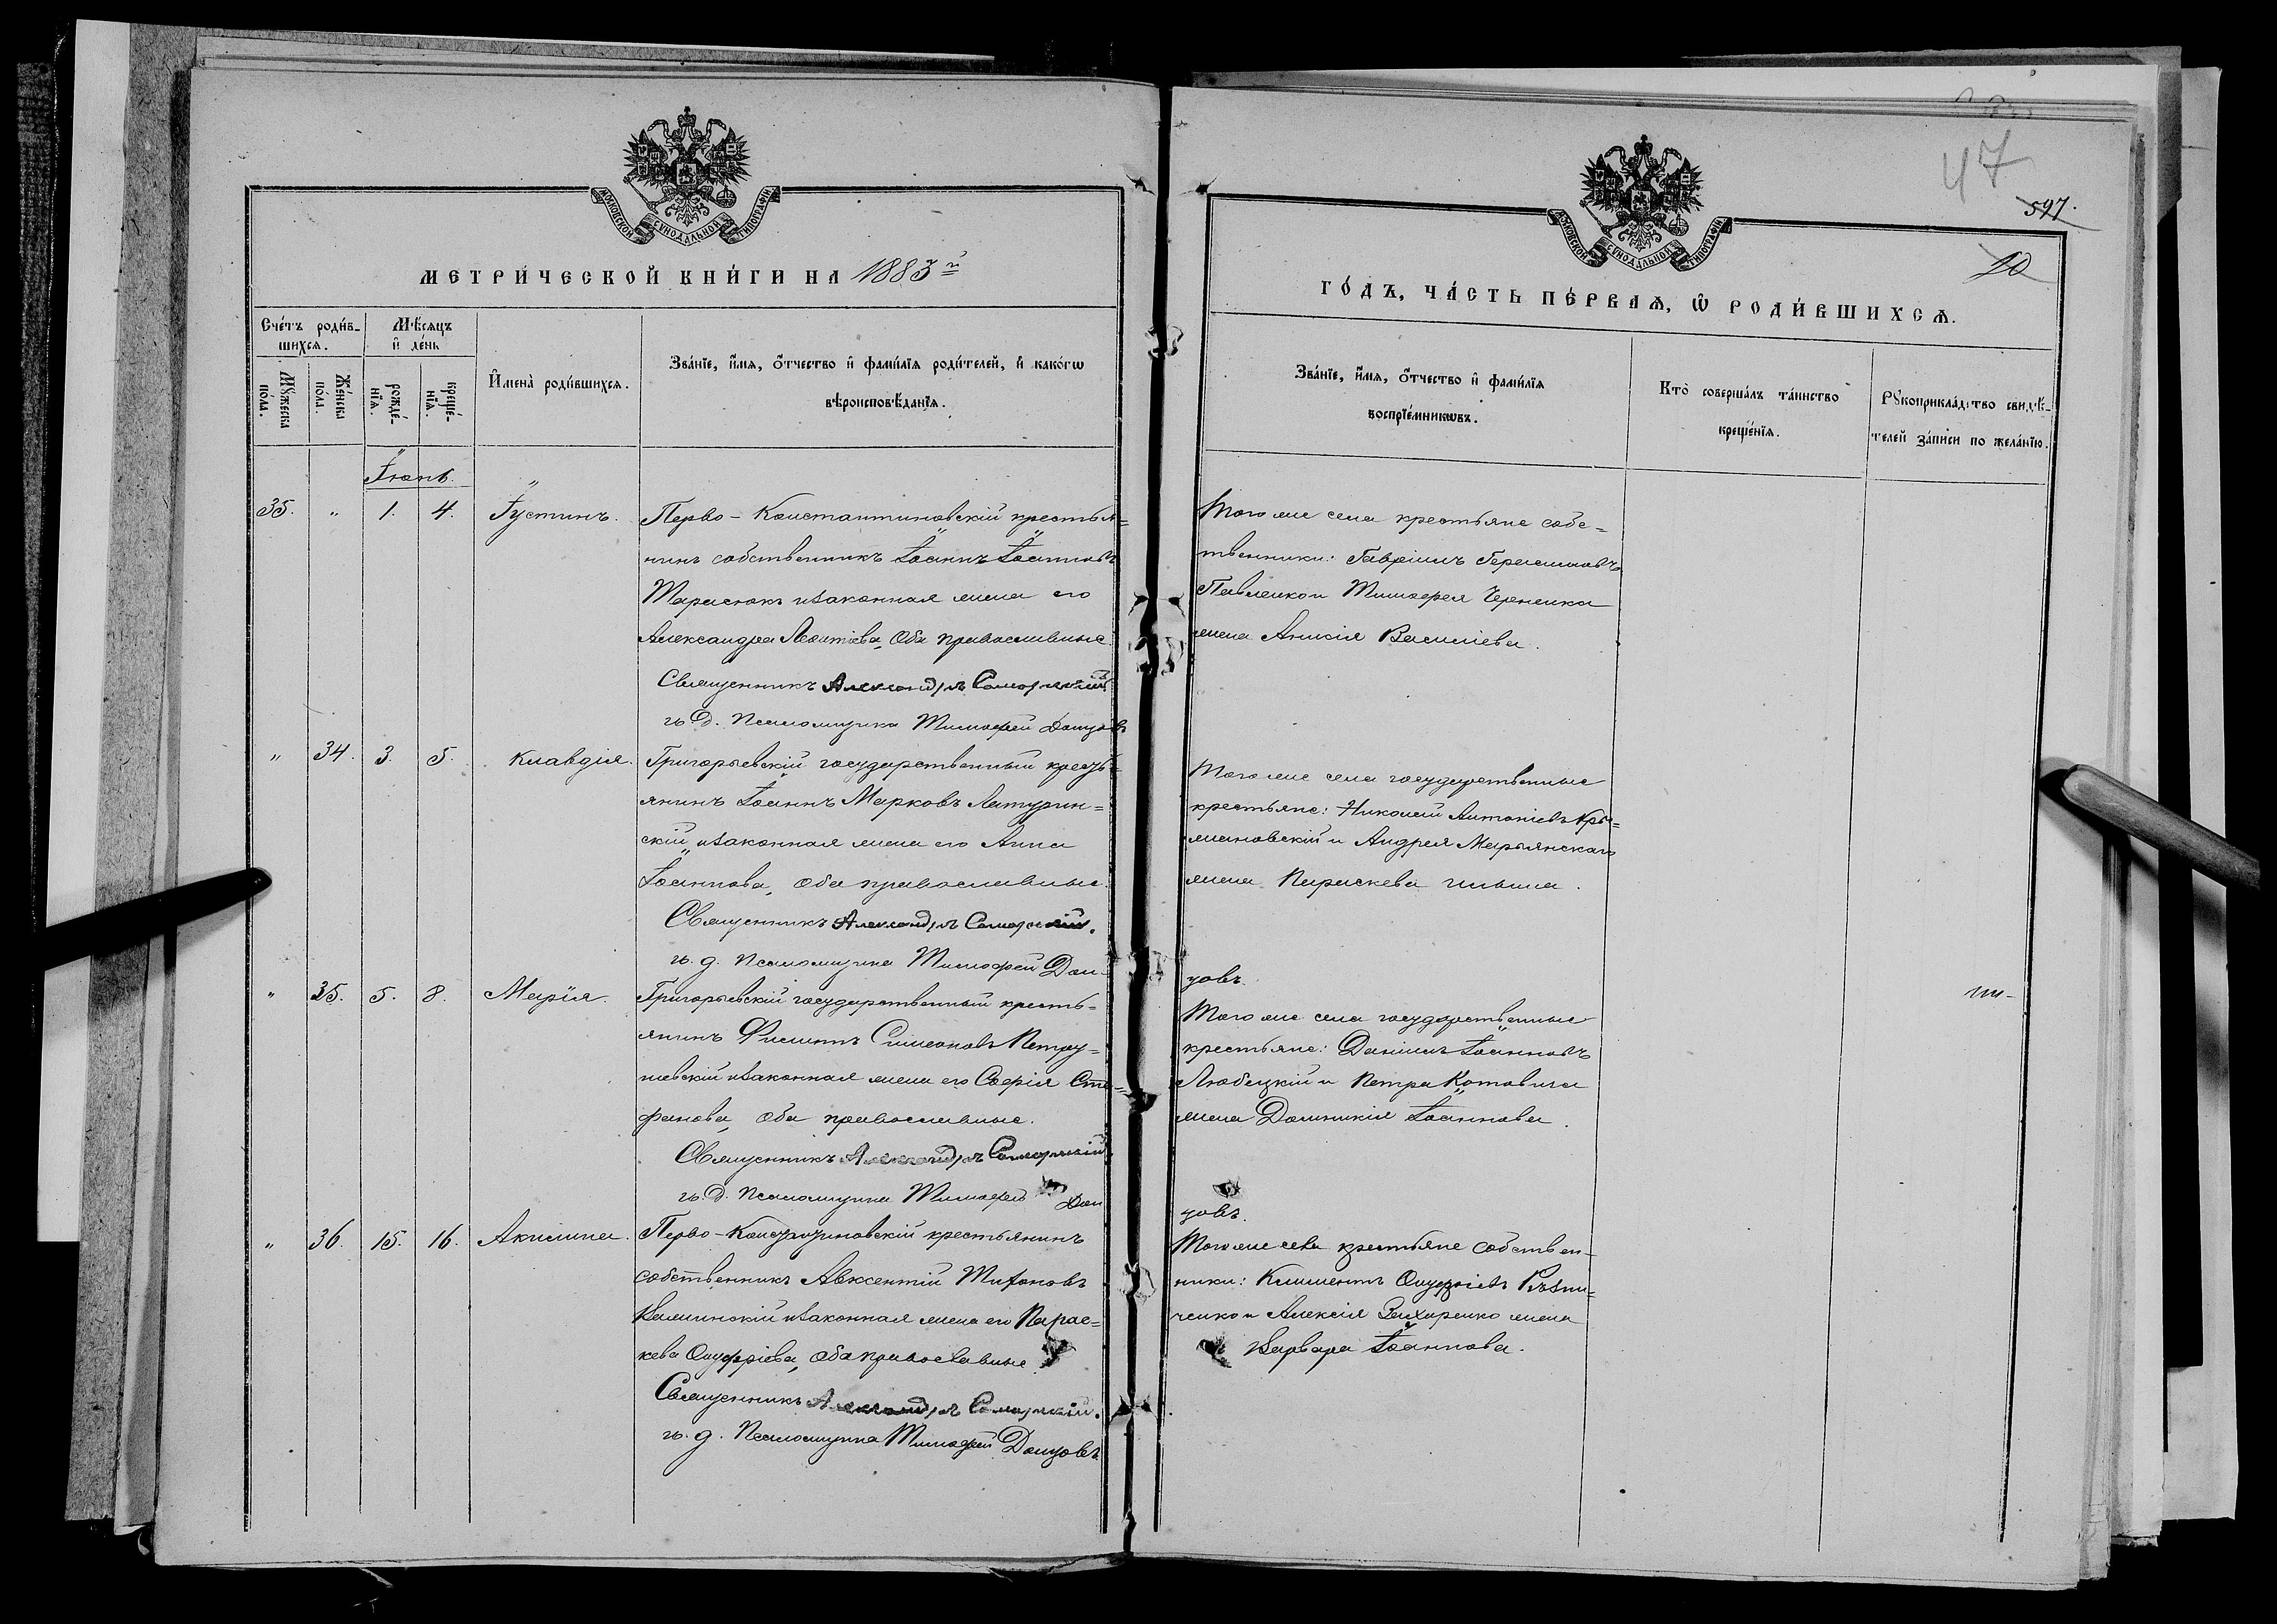 МОСКОВСКОЙ СѴНОДАЛЬНОЙ ТИПОГРАФІИ
МЕТРИ́ЧЕСКОЙ КНИ́ГИ НА 1883й
Сче́тъ роди́в-
шихсѧ.
Мѣ́сѧцъ
и҆ де́нь
И҆мена̀ роди́вшихсѧ.
Зва́нїе, и҆́мѧ, ѻ҆́тчество и҆ фами́лїѧ роди́телей, и҆ како́гѡ
вѣроисповѣ́данїѧ.
Мꙋ́жеска
по́ла.
Же́нска
по́ла.
рожде́-
нїѧ.
креще́-
нїѧ.
Іюнь.
35. " 1. 4. Іустинъ. Перво-Константиновскій крестья=
нинъ собственникъ Іоаннъ Іоанновъ
Тарасюкъ и законная жена его
Александра Леонтіева, Оба православные
Священникъ Александръ
и. д. Псаломщика Тимофей Донцовъ
" 34. 3. 5. Клавдія. Григорьевскій государственный кресть=
янинъ Іоаннъ Марковъ Латурин=
скій и законная жена его Анна
Іоаннова, оба православные.
Священникъ Александръ
и. д. Псаломщика Тимофей Дон-
" 35. 5. 8. Марія. Григорьевскій государственный кресть=
янинъ Симеоновъ Петру=
шевскій и законная жена его Софія Сте=
фанова, Оба православные.
Священникъ Александръ
и. д. Псаломщика Тимофей Дон
" 36. 15. 16. Акилина. Перво-Константиновскій крестьянинъ
собственникъ Авксентій
Калинскій и законная жена его Парас=
кева Онуфріева, оба православные
Священникъ Александръ
и. д. Псаломщика Тимофей Донцовъ
МОСКОВСКОЙ СѴНОДАЛЬНОЙ ТИПОГРАФІИ
47
597.
ГО́ДЪ, ЧА́СТЬ ПЕ́РВАѦ, Ѡ҆ РОДИ́ВШИХСѦ.
Зва́нїе, и҆́мѧ, ѻ҆́тчество и҆ фами́лїѧ
воспрїе́мникѡвъ.
Кто̀ соверша́лъ та́инство
креще́нїѧ.
Рꙋкоприкла́дство свидѣ́-
телей за́писи по жела́нїю.
Того же села крестьяне собс=
твенники: Гавріилъ Герасимовъ
Павленко и Тимофея Черненка
жена Васильева.
Того же села государственные
крестьяне: Николай Антоніевъ Кры=
жановскій и Андрея Марьянскаго
жена Параскева
цовъ.
Того же села государственные
крестьяне: Даніилъ Іоанновъ
Любецкій и Петра Котовича
жена Домникія Іоаннова.
цовъ.
Того же села крестьяне собствен-
ники: Климентъ Онуфріевъ Рѣзни=
ченко и Алексія Захаренко жена
Варвара Іоаннова.